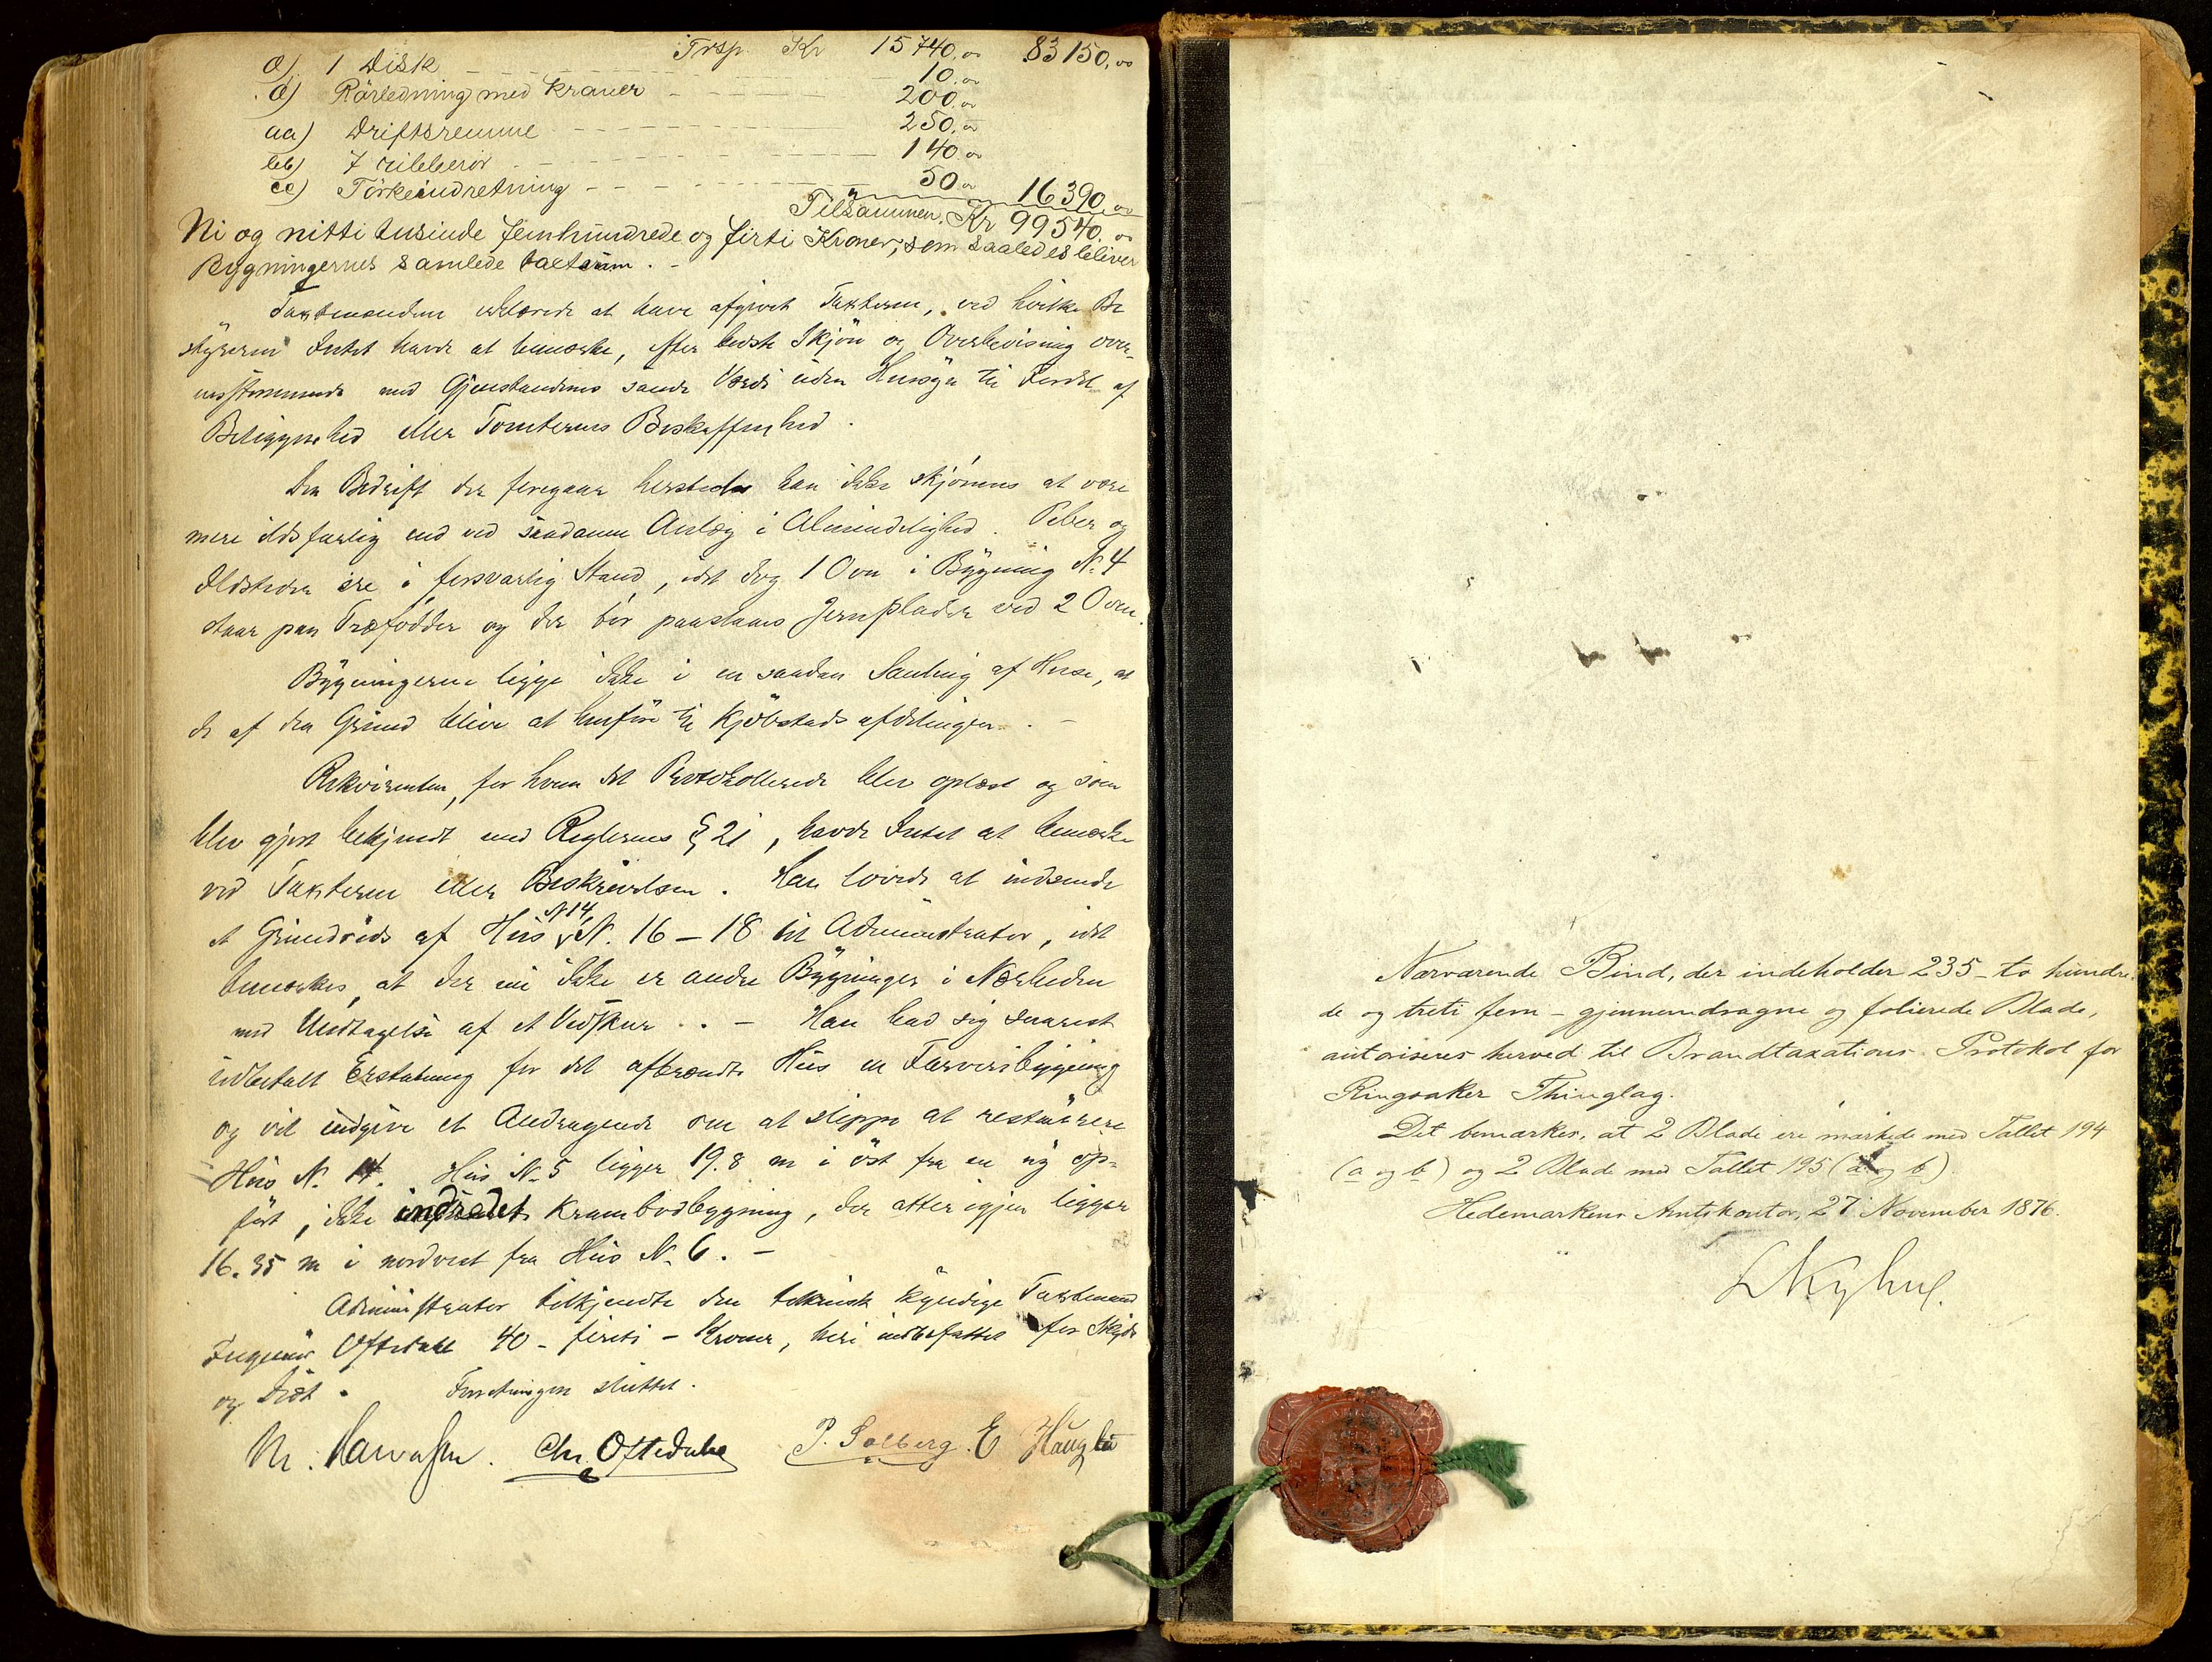 Trsp. Kr 15740,00 83150,00
ø) 1 Disk 10.00
å) Rørledning med Kraner 200.00
aa) Driftsremme 250.00
bb) 7 ribberør 140.00
cc) Törkeindretning 50.00 16390,00
Tilsammen. Kr 99540.00
Ni og nitti tusinde femhundrede og firti Kroner, som saaledes bliver
Bygningernes samlede taxtsum. -
Taxtmændene erklærede at have afgivet Taxterne, ved hvilke Be
styreren Intet havde at bemærke, efter bedste Skjøn og Overbevisning over-
ensstemmende med Gjenstandenes sande Værdi uden Hensyn til Fordel af
Beliggenhed eller Tomternes Beskaffenhed.
Den Bedrift der foregaar hersteds kan ikke skjønnes at være
mere ildsfarlig end ved saadanne Anlæg i Almindelighed. Piber og
Ildsteder ere i forsvarlig Stand, idet dog 1 Ovn i Bygning N. 4
staar paa Træfødder og der bör paaslaaes Jernplader ved 2 Ovne.
Bygningerne ligge ikke i en saadan Samling af Huse, at
de af den Grund blive at henføre til Kjöbstadsafdelingen. -
Rekvirenten, for hvem det Protokollerede blev oplæst og som
blev gjort bekjendt med Reglernes § 21, havde Intet at bemærke
ved Taxterne eller Beskrivelsen. Han lovede at indsende
et Grundrids af Hus N 14, N. 16 - 18 til Administrator, idet
bemærkes, at der nu ikke er andre Bygninger i Nærheden
med Undtagelse af et Vedskur. . - Han bad sig snarest
udbetalt Erstatning for det afbrændte Hus en Farveribygning
og vil indgive et Andragende om at slippe at restaurere
Hus N. 14. Hus N. 5 ligger 19.8 m i öst fra en ny op-
ført, ikke indredet Krambodbygning, der atter igjen ligger
16.35 m i nordvest fra Hus N. 6. -
Administrator tilkjendte den teknisk kyndige Taxtmand
Ingeniör Oftedahl 40 - firti - Kroner, heri indbefattet for Skyds
og Diæt. Forretningen sluttet.
Chr. Oftedahl P. Solberg. E Haugli
Nærværende Bind, der indeholder 235 - to hundre-
de og treti fem - gjennemdragne og folierede Blade,
autoriseres herved til Brandtaxations-Protokol for
Ringsaker Thinglag.
Det bemærkes, at 2 Blade ere mærkede med Tallet 194
(a og b) og 2 Blade med Tallet 195 (a og b).
Hedemarkens Amtskontor, 27 November 1876.